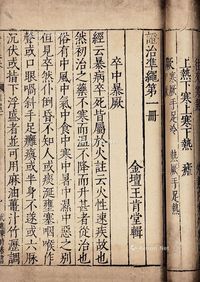 上熱下寒上寒下熱
厥寒厥手足冷 熱厥手足熱
證治準繩第一冊
金壇王肯堂輯
卒中暴厥
經云暴病卒死皆屬於火註云火性速疾故也
然初治之藥不寒而溫不降而升甚者從治也
俗有中風中氣中食中寒中暑中濕中惡之別
但見卒然仆倒昏不知人或痰涎壅塞咽喉作
聲或口眼喎斜手足癱瘓或半身不遂或六脈
沉伏或指下浮盛者並可用麻油薑汁竹瀝調